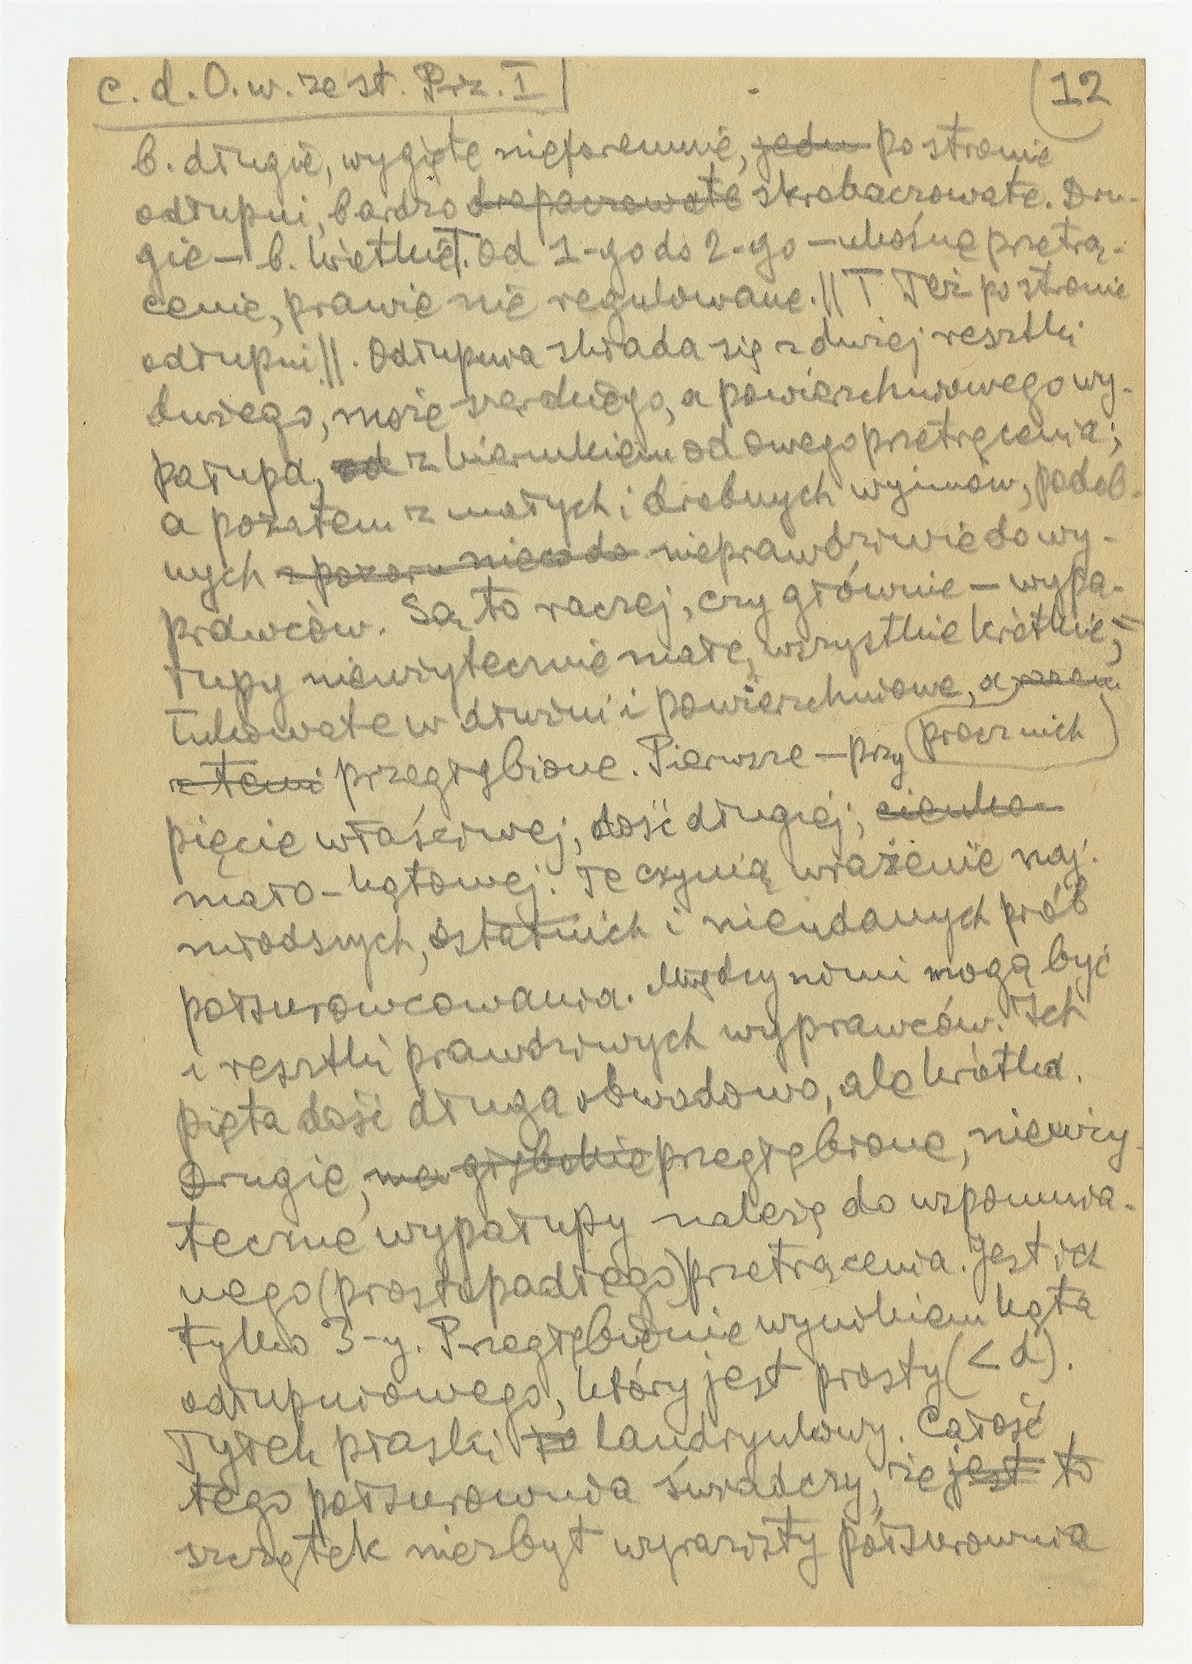 c. d. O. w. zest. Prz. I
12
b. długie, wygięte nieforemnie, jedn po stronie
odłupni, bardzo drapaczowate skrobaczowate. Dru-
gie — b. krótkie T. Od 1-go do 2-go — ukośne przetrą-
cenie, prawie nie regulowane. || T Też po stronie
odłupni ||. Odłupnia składa się z dużej resztki
dużego, może szerokiego, a powierzchniowego wy-
pałupa, od z kierunkiem od owego przetrącenia;
a pozatem z małych i drobnych wyimów, podob-
nych z pozoru nieco do nieprawdziwie do wy-
prawców. Są to raczej, czy głównie — wypa-
łupy nieużytecznie małe, wszystkie krótkie,
łukowate w dłużni i powierzchniowe, a razem
z temi przegłębione. Pierwsze — przy
prócz nich
pięcie właściwej, dość długiej; cienko-
mało-kątowej. Te czynią wrażenie naj-
młodszych, ostatnich i nieudanych prób
półsurowcowania. Między nimi mogą być
i resztki prawdziwych wyprawców. Ich
pięta dość długa obwodowo, ale krótka.
Drugie, na głębokie przegłębione, nieuży-
teczne wypałupy należą do wspomnia-
nego (prostopadłego) przetrącenia. Jest ich
tylko 3-y. Przegłębienie wynikiem kąta
odłupniowego, który jest prosty (< d).
Tyłek płaski to landrynkowy. Całość
tego półsurownia świadczy, że jest to
szczątek niezbyt wyrazisty półsurownia